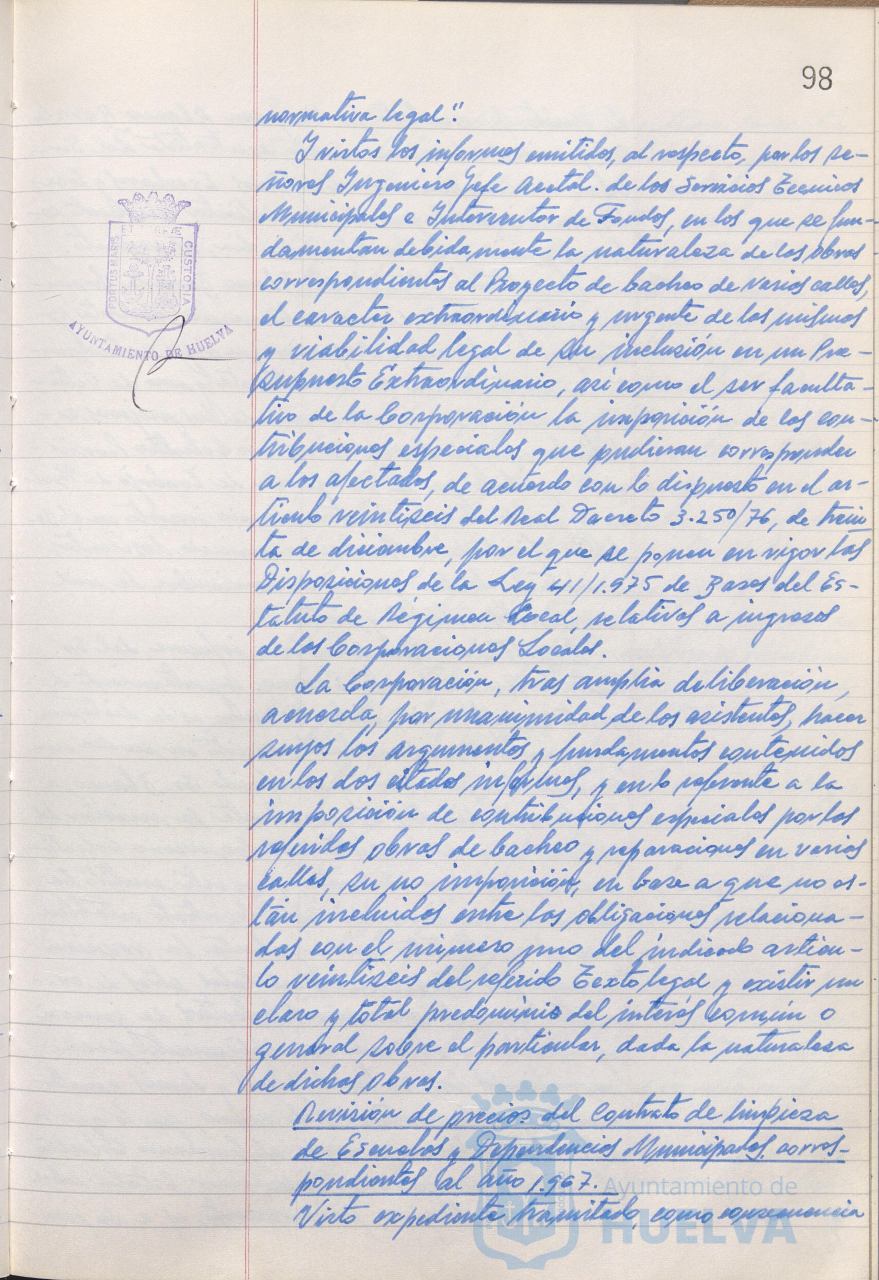 98
normativa legal".
Y vistos los informes emitidos, al respecto, por los se-
ñores Ingeniero Jefe Acctal. de los Servicios Técnicos
Municipales e Interventor de Fondos, en los que se fun-
damentan debidamente la naturaleza de las obras
correspondientes al Proyecto de bacheo de varias calles,
el caracter extraordinario y urgente de las mismas
y viabilidad legal de su inclusión en un Pre-
supuesto Extraordinario, así como el ser faculta-
tivo de la Corporación la imposición de las con-
tribuciones especiales que pudieran corresponder
a los afectados, de acuerdo con lo dispuesto en el ar-
tículo veintiseis del Real Decreto 3.250/76, de trein
ta de diciembre, por el que se ponen en vigor las
Disposiciones de la Ley 41/1.975 de Bases del Es-
tatuto de Régimen Local, relativas a ingresos
de las Corporaciones Locales.
La Corporación, tras amplia deliberación,
acuerda, por unanimidad de los asistentes, hacer
suyos los argumentos y fundamentos contenidos
en los dos citados informes, y en lo referente a la
imposición de contribuciones especiales por las
referidas obras de bacheo y reparaciones en varias
calles, su no imposición, en base a que no es-
tán incluidas entre las obligaciones relaciona-
das con el número uno del indicado artícu-
lo veintiseis del referido Texto legal y existir un
claro y total predominio del interés común o
general sobre el particular, dada la naturaleza
de dichas obras.
Revisión de precios del Contrato de limpieza
de Escuelas y Dependencias Municipales, corres-
pondientes al año 1.967.
Visto expediente tramitado, como consecuencia
PORTUS MARIS
ET
CUSTODIA
AYUNTAMIENTO DE HUELVA
Ayuntamiento de
HUELVA